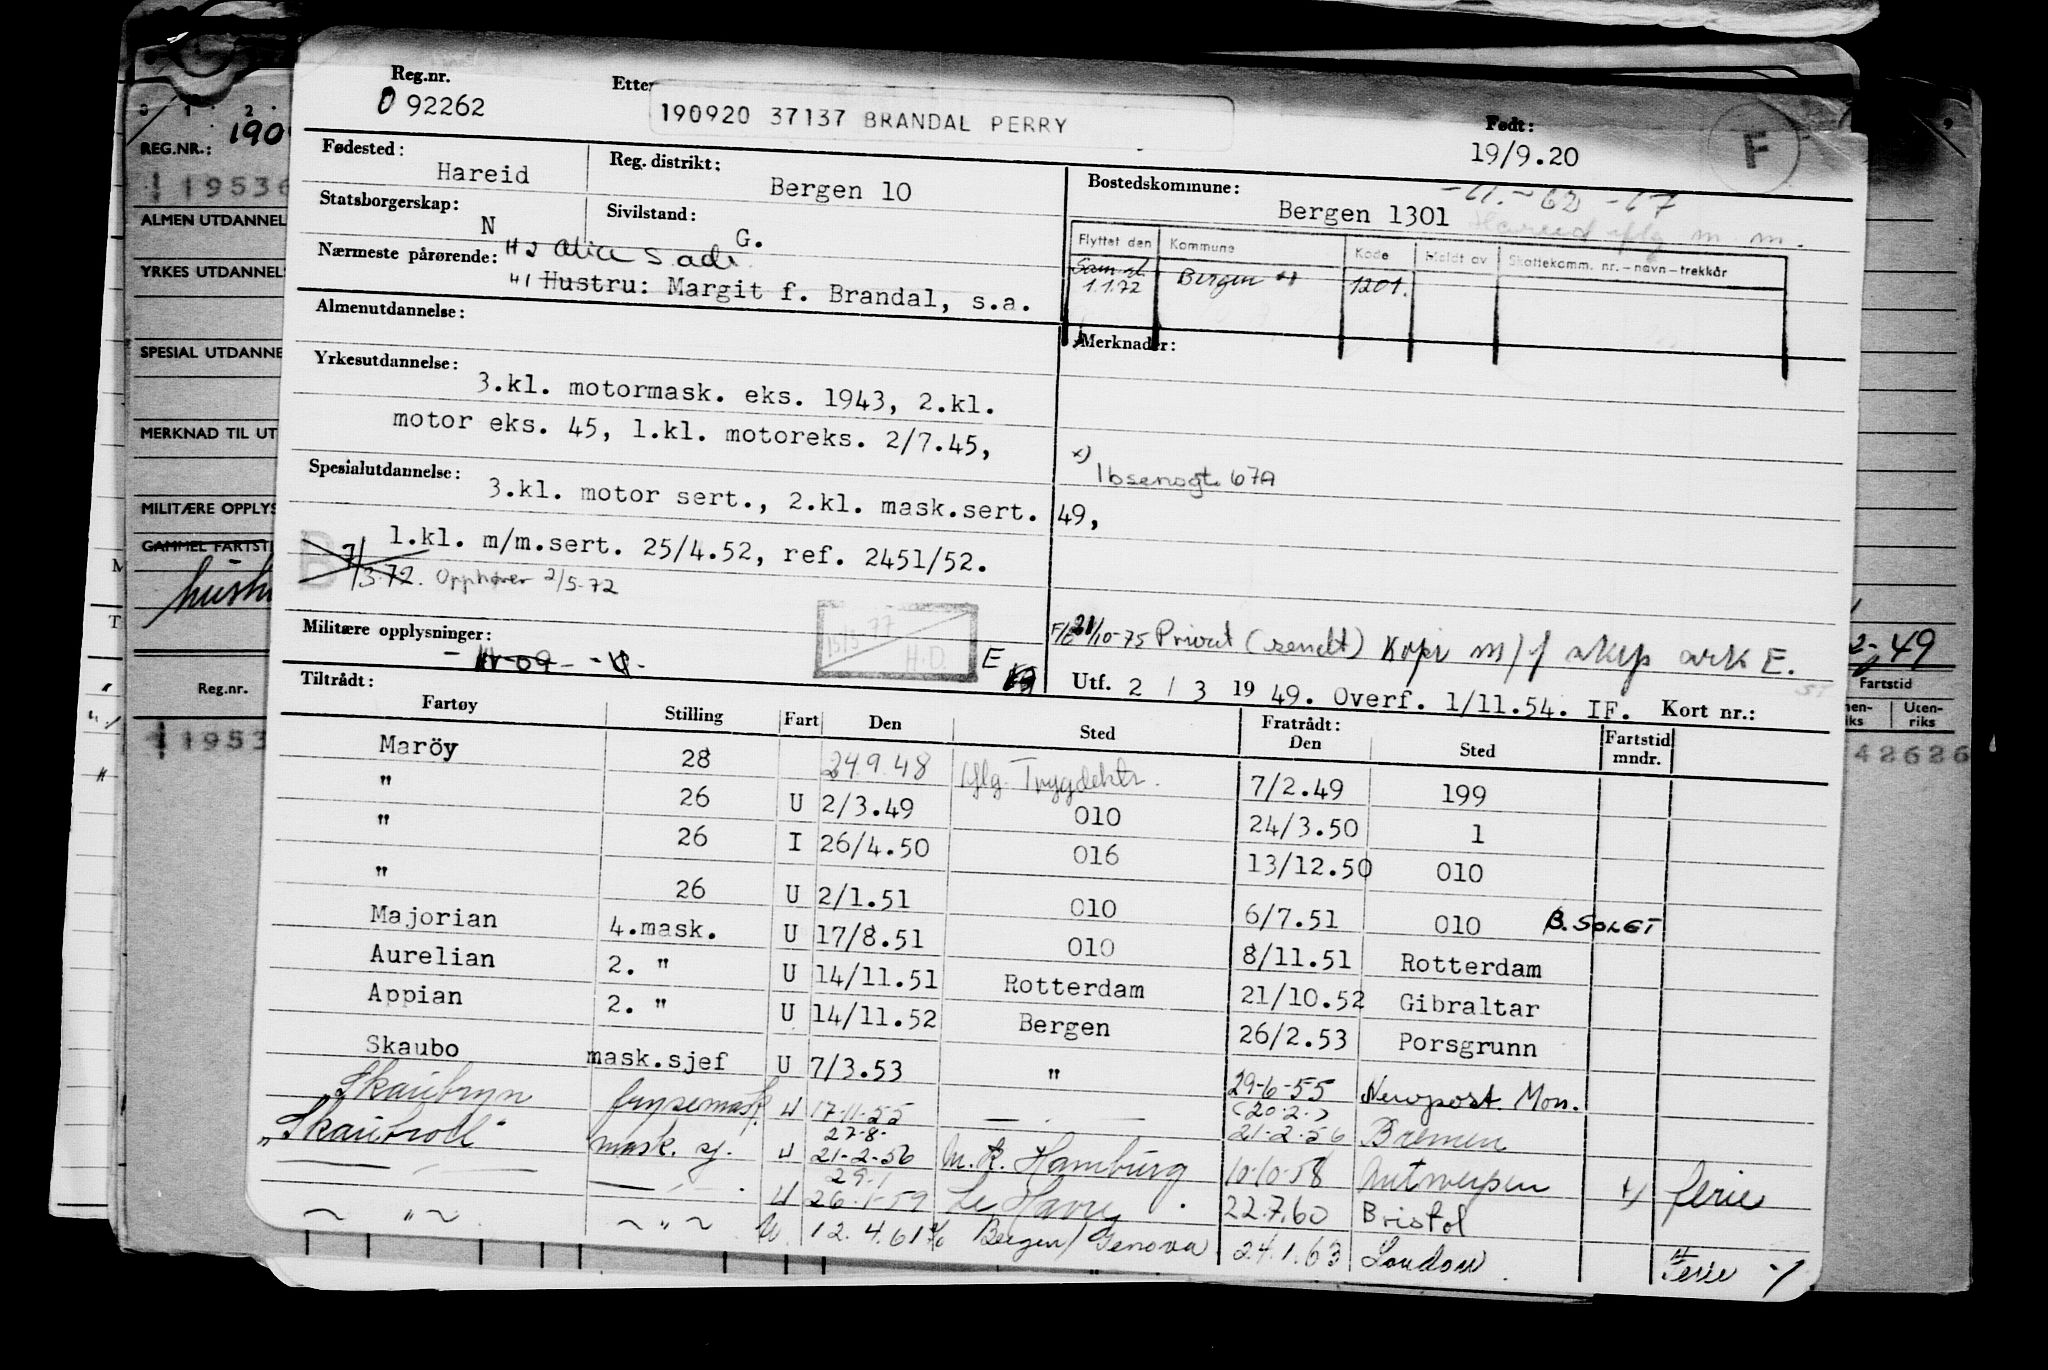 Reg.nr. Etter Født:
0 92262 190920 37137 BRANDAL PERRY 19/9.20 F
Fødested: Hareid Reg. distrikt: Bergen 10 Bostedskommune: Bergen 1301
Statsborgerskap: N Sivilstand: G.
Nærmeste pårørende:
Hustru: Margit f. Brandal, s.a.
Flyttet den Kommune Kode Meldt av Skattekomm. nr.-navn-trekkår
1.1.72 Bergen 1201.
Almenutdannelse: Merknader:
Yrkesutdannelse: 3.kl. motormask. eks. 1943, 2.kl.
motor eks. 45, 1.kl. motoreks. 2/7.45,
x) Ibsensgt. 67A
Spesialutdannelse: 3.kl. motor sert., 2.kl. mask.sert. 49,
1.kl. m/m.sert. 25/4.52, ref. 2451/52.
B 7/3-72. Opphører 2/5-72
Militære opplysninger: 15/3-77 H.O. E
10-75 Privat (sendt) Kopi m/f ark E.
Utf. 2 / 3 19 49. Overf. 1/11.54. IF. Kort nr.:
Tiltrådt: Fratrådt:
Fartøy Stilling Fart Den Sted Den Sted Fartstid mndr.
Maröy 28 24.9.48 iflg. Trygdektr. 7/2.49 199
" 26 U 2/3.49 010 24/3.50 1
" 26 I 26/4.50 016 13/12.50 010
" 26 U 2/1.51 010 6/7.51 010 B.SOLGT
Majorian 4.mask. U 17/8.51 010 8/11.51 Rotterdam
Aurelian 2. " U 14/11.51 Rotterdam 21/10.52 Gibraltar
Appian 2. " U 14/11.52 Bergen 26/2.53 Porsgrunn
Skaubo mask.sjef U 7/3.53 " 29-6-55 Newport. Mon.
Skaubryn frysemask. U 17-11-55 — " — (20.2.) 21-2-56 Bremen
"Skauvoll" mask. sj. U 27-8- 21-2-56 Hamburg 10-10-58 Antwerpen x) ferie
— " — — " — U 29.1 26.1-59 Le Havre 22.7.60 Bristol
~ " ~ ~ " ~ U. 12.4.61 Bergen/Genova 24.1.63 London Ferie
REG.NR.: 190
11953
ALMEN UTDANNEL
YRKES UTDANNEL
SPESIAL UTDANNE
MERKNAD TIL UT
MILITÆRE OPPLYS
GAMMEL FARTSTI
Reg.nr.
11953
2-49
Fartstid
Uten-
riks
42626